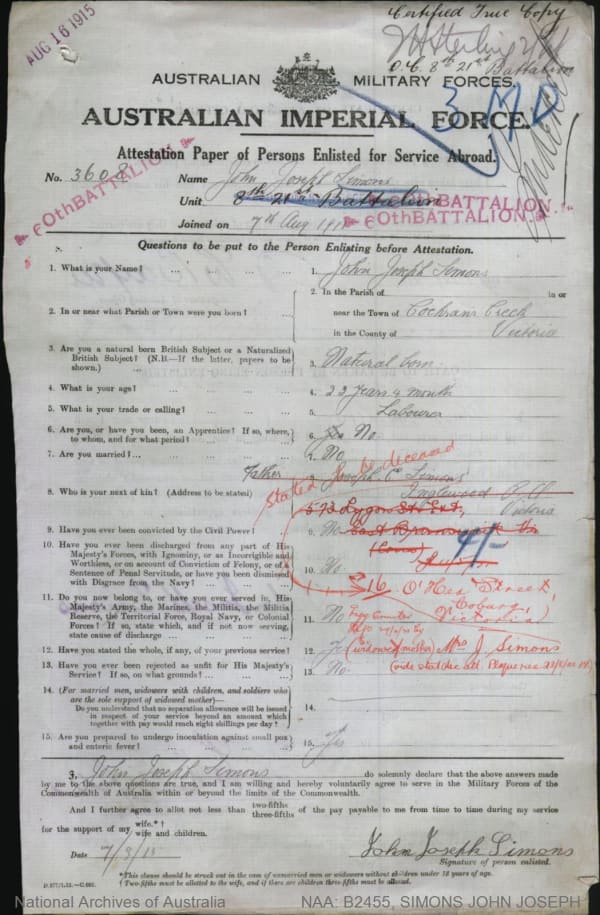 AUG 16 1915
Certified True Copy
O.C. 8th 21st Battalion
AUSTRALIAN MILITARY FORCES.
3 MD
AUSTRALIAN IMPERIAL FORCE.
Attestation Paper of Persons Enlisted for Service Abroad.
No. 3608 Name John Joseph Simons
Unit 8th 21st Battalion
60th BATTALION 60th BATTALION
Joined on 7th Aug 191
Questions to be put to the Person Enlisting before Attestation.
1. What is your Name? ... 1. John Joseph Simons
2. In or near what Parish or Town were you born? ... 2. In the Parish of in or
near the Town of Cochrans Creek
in the County of Victoria
3. Are you a natural born British Subject or a Naturalized British Subject? (N.B.—If the latter, papers to be shown.) ... 3. Natural born
4. What is your age? ... 4. 22 years 4 month
5. What is your trade or calling? ... 5. Labourer
6. Are you, or have you been, an Apprentice? If so, where, to whom, and for what period? ... 6. No
7. Are you married? ... 7. No
stated to be deceased
8. Who is your next of kin? (Address to be stated) Father 8. Joseph Simons
Inglewood
572 Lygon St Victoria
9. Have you ever been convicted by the Civil Power? ... 9. No East Brunswick
10. Have you ever been discharged from any part of His Majesty's Forces, with Ignominy, or as Incorrigible and Worthless, or on account of Conviction of Felony, or of a Sentence of Penal Servitude, or have you been dismissed with Disgrace from the Navy? ... 10. No
4/-
216 O'Hea Street,
Coburg,
Victoria
11. Do you now belong to, or have you ever served in, His Majesty's Army, the Marines, the Militia, the Militia Reserve, the Territorial Force, Royal Navy, or Colonial Forces? If so, state which, and if not now serving, state cause of discharge ... 11. No
12. Have you stated the whole, if any, of your previous service? 12. Yes
(widowed mother) Mrs J. Simons
13. Have you ever been rejected as unfit for His Majesty's Service? If so, on what grounds? ... 13. No.
14. (For married men, widowers with children, and soldiers who are the sole support of widowed mother)—
Do you understand that no separation allowance will be issued in respect of your service beyond an amount which together with pay would reach eight shillings per day? 14.
15. Are you prepared to undergo inoculation against small pox and enteric fever? ... 15. Yes
3. John Joseph Simons do solemnly declare that the above answers made
by me to the above questions are true, and I am willing and hereby voluntarily agree to serve in the Military Forces of the
Commonwealth of Australia within or beyond the limits of the Commonwealth.
And I further agree to allot not less than two-fifths three-fifths of the pay payable to me from time to time during my service
for the support of my wife.*† wife and children.
Date 7/8/15 John Joseph Simons
Signature of person enlisted.
*This clause should be struck out in the case of unmarried men or widowers without children under 18 years of age.
†Two-fifths must be allotted to the wife, and if there are children three-fifths must be allotted.
National Archives of Australia NAA: B2455, SIMONS JOHN JOSEPH